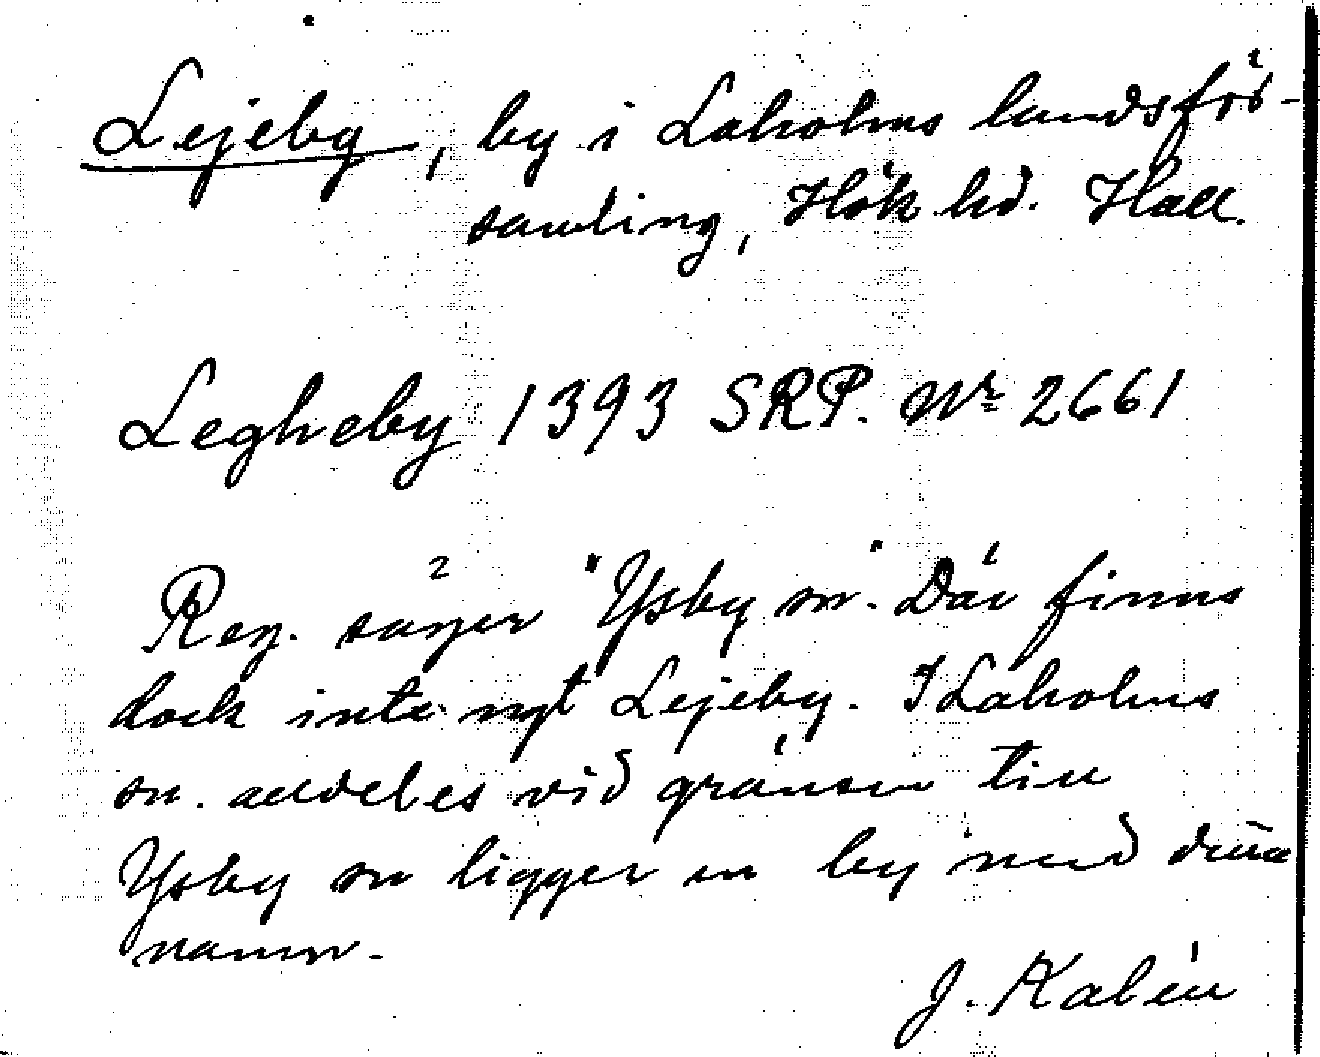 Lejeby, by i Laholms landsför-
samling, Hök hd. Hall.
Legheby 1393 SRP. Nr 2661
Reg. säger "Ysby sn". Där finns
dock inte nyt Lejeby. I Laholms
sn. alldeles vid gränsen till
Ysby sn ligger en by med detta
namn.
J. Kalén